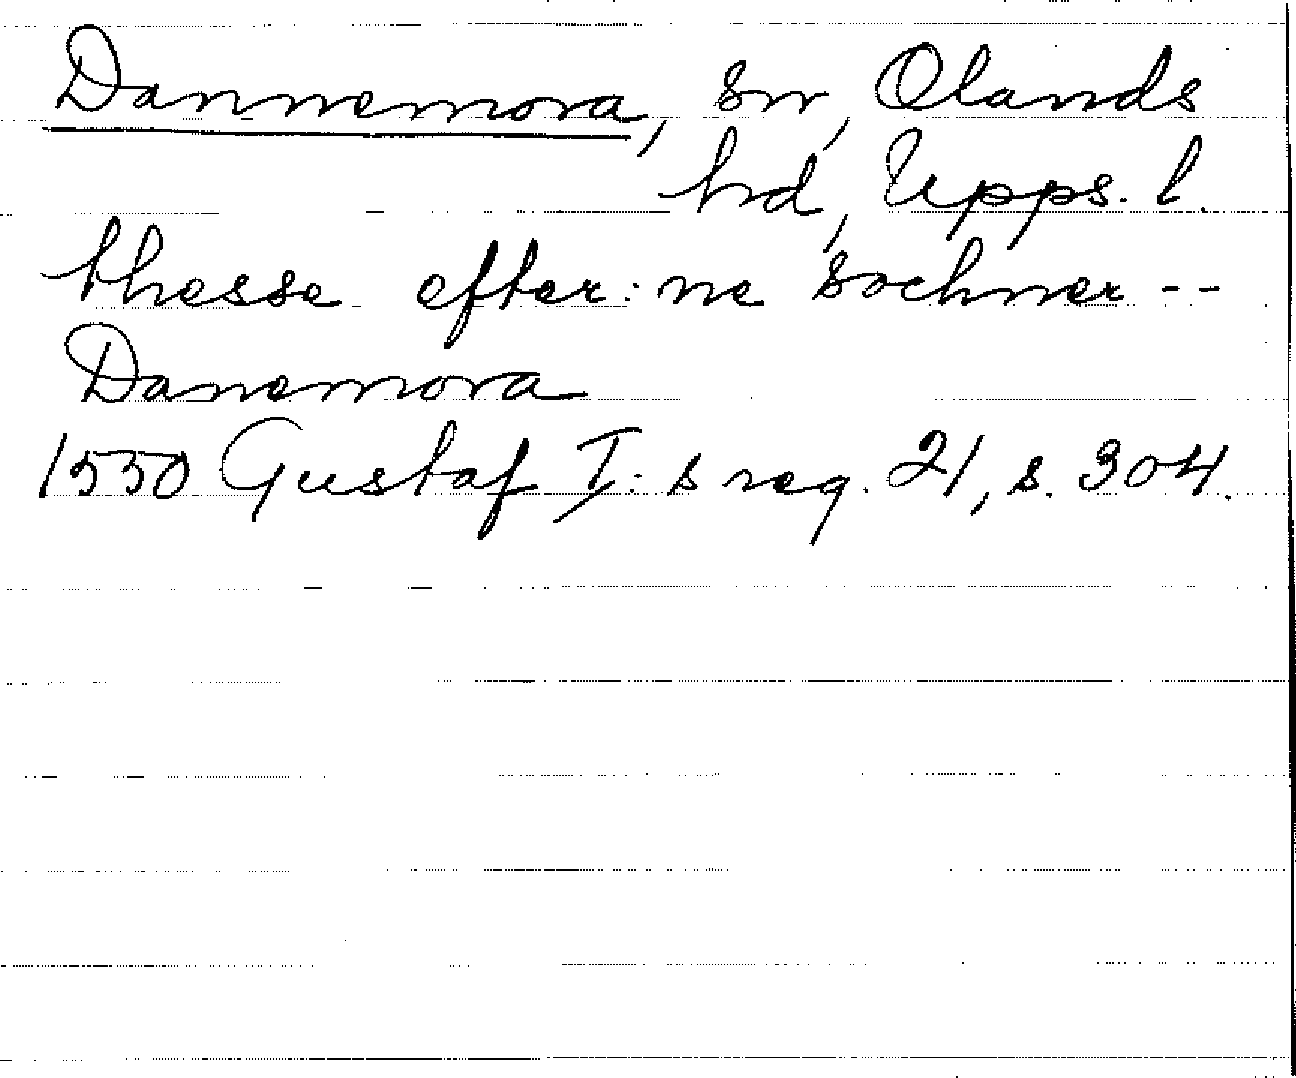 Dannemora, sn, Olands
hd, Upps. l.
thesse efter:ne sochner --
Danemora
1550 Gustaf I:s reg. 21, s. 304.